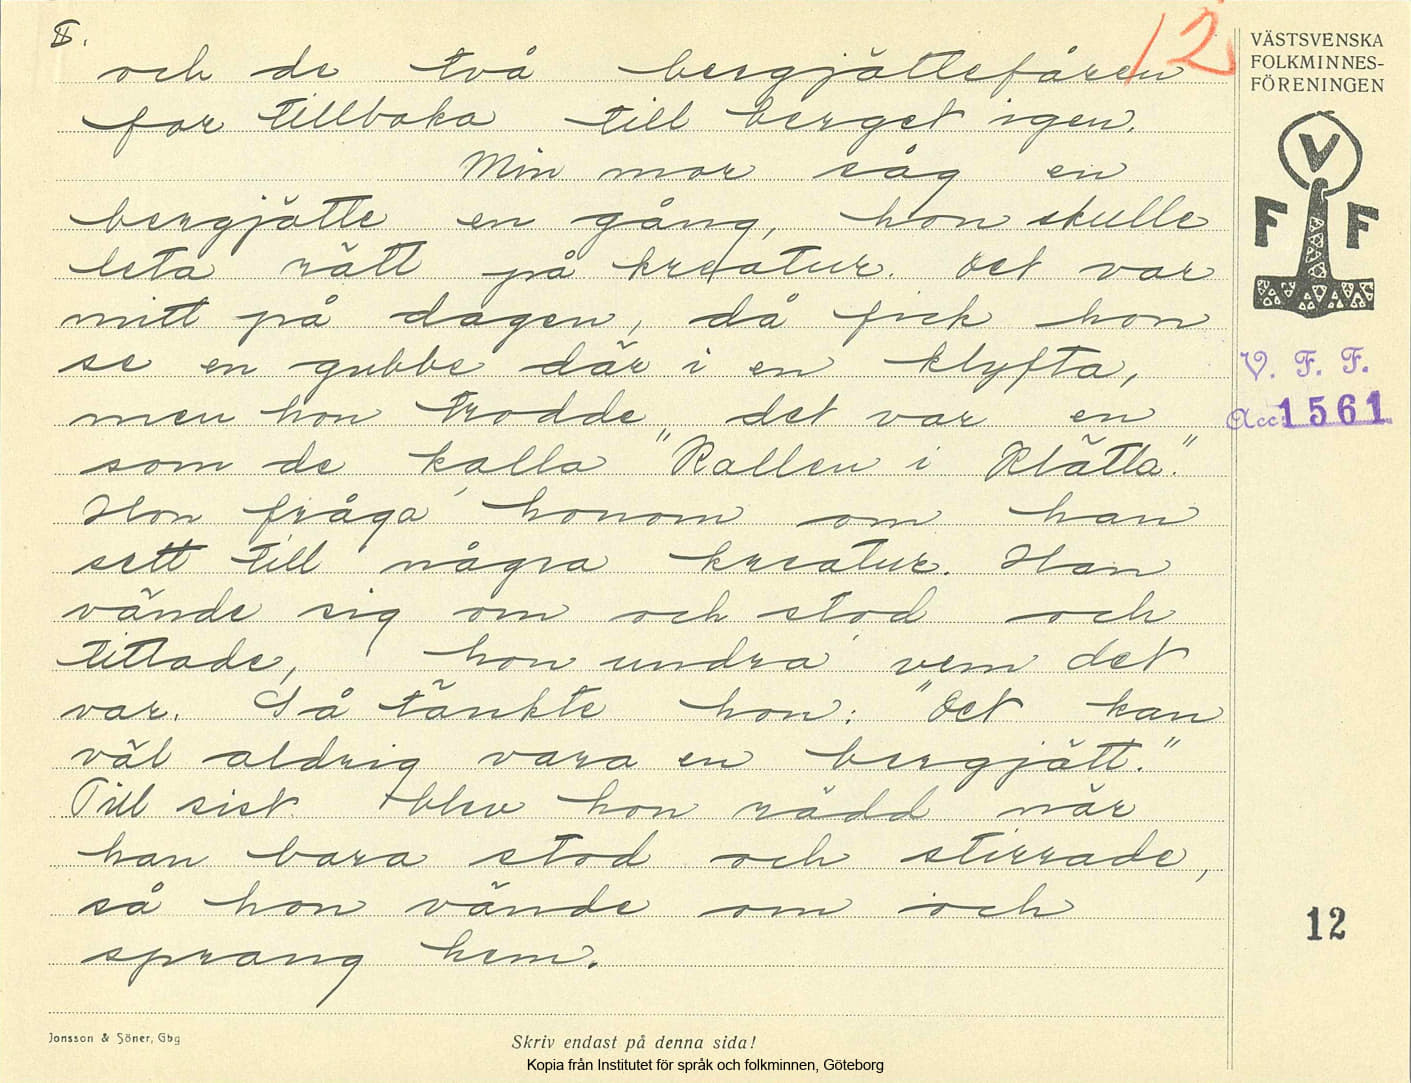 II.
12
och de två bergjättefåren
for tillbaka till berget igen.
Min mor såg en
bergjätte en gång, hon skulle
leta rätt på kreatur. Det var
mitt på dagen, då fick hon
se en gubbe där i en klyfta,
men hon trodde det var en
som de kalla "Kallen i Klätta."
Hon fråga honom om han
sett till några kreatur. Han
vände sig om och stod och
tittade, hon undra vem det
var. Så tänkte hon: "Det kan
väl aldrig vara en bergjätt."
Till sist blev hon rädd när
han bara stod och stirrade,
så hon vände om och
sprang hem.
VÄSTSVENSKA
FOLKMINNES-
FÖRENINGEN
V
F F
V. F. F.
Acc. 1561
12
Jonsson & Söner, Gbg
Skriv endast på denna sida!
Kopia från Institutet för språk och folkminnen, Göteborg